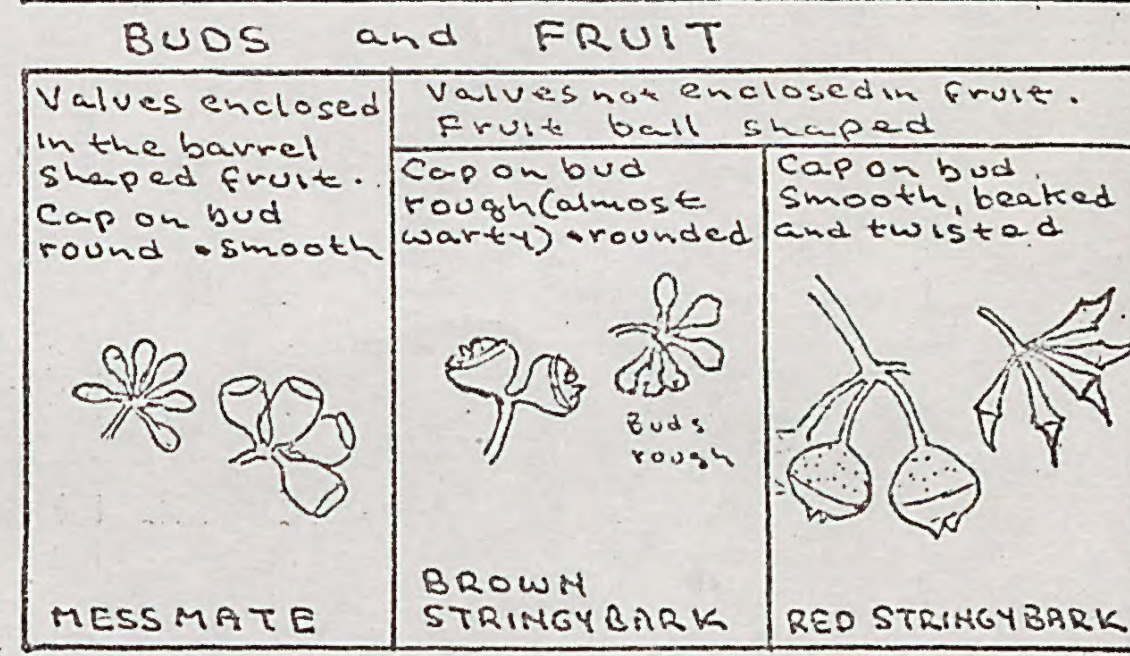 BUDS and FRUIT
Valves enclosed
in the barrel
shaped fruit.
Cap on bud
round & smooth
MESSMATE
Valves not enclosed in fruit.
Fruit ball shaped
Cap on bud
rough (almost
warty) & rounded
Buds
rough
BROWN
STRINGYBARK
Cap on bud
smooth, beaked
and twisted
RED STRINGYBARK